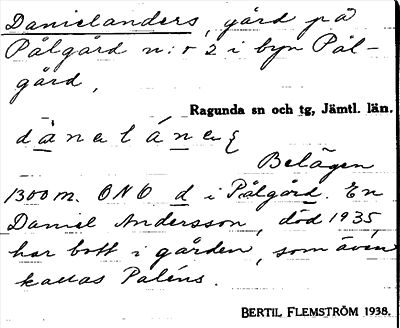 Danielanders, gård på
Pålgård n:o 2 i byn Pål-
gård,
Ragunda sn och tg, Jämtl. län.
Belägen
1300 m. ONO d i Pålgård. En
Daniel Andersson, död 1935
har bott i gården, som även
kallas Paléns.
BERTIL FLEMSTRÖM 1938.